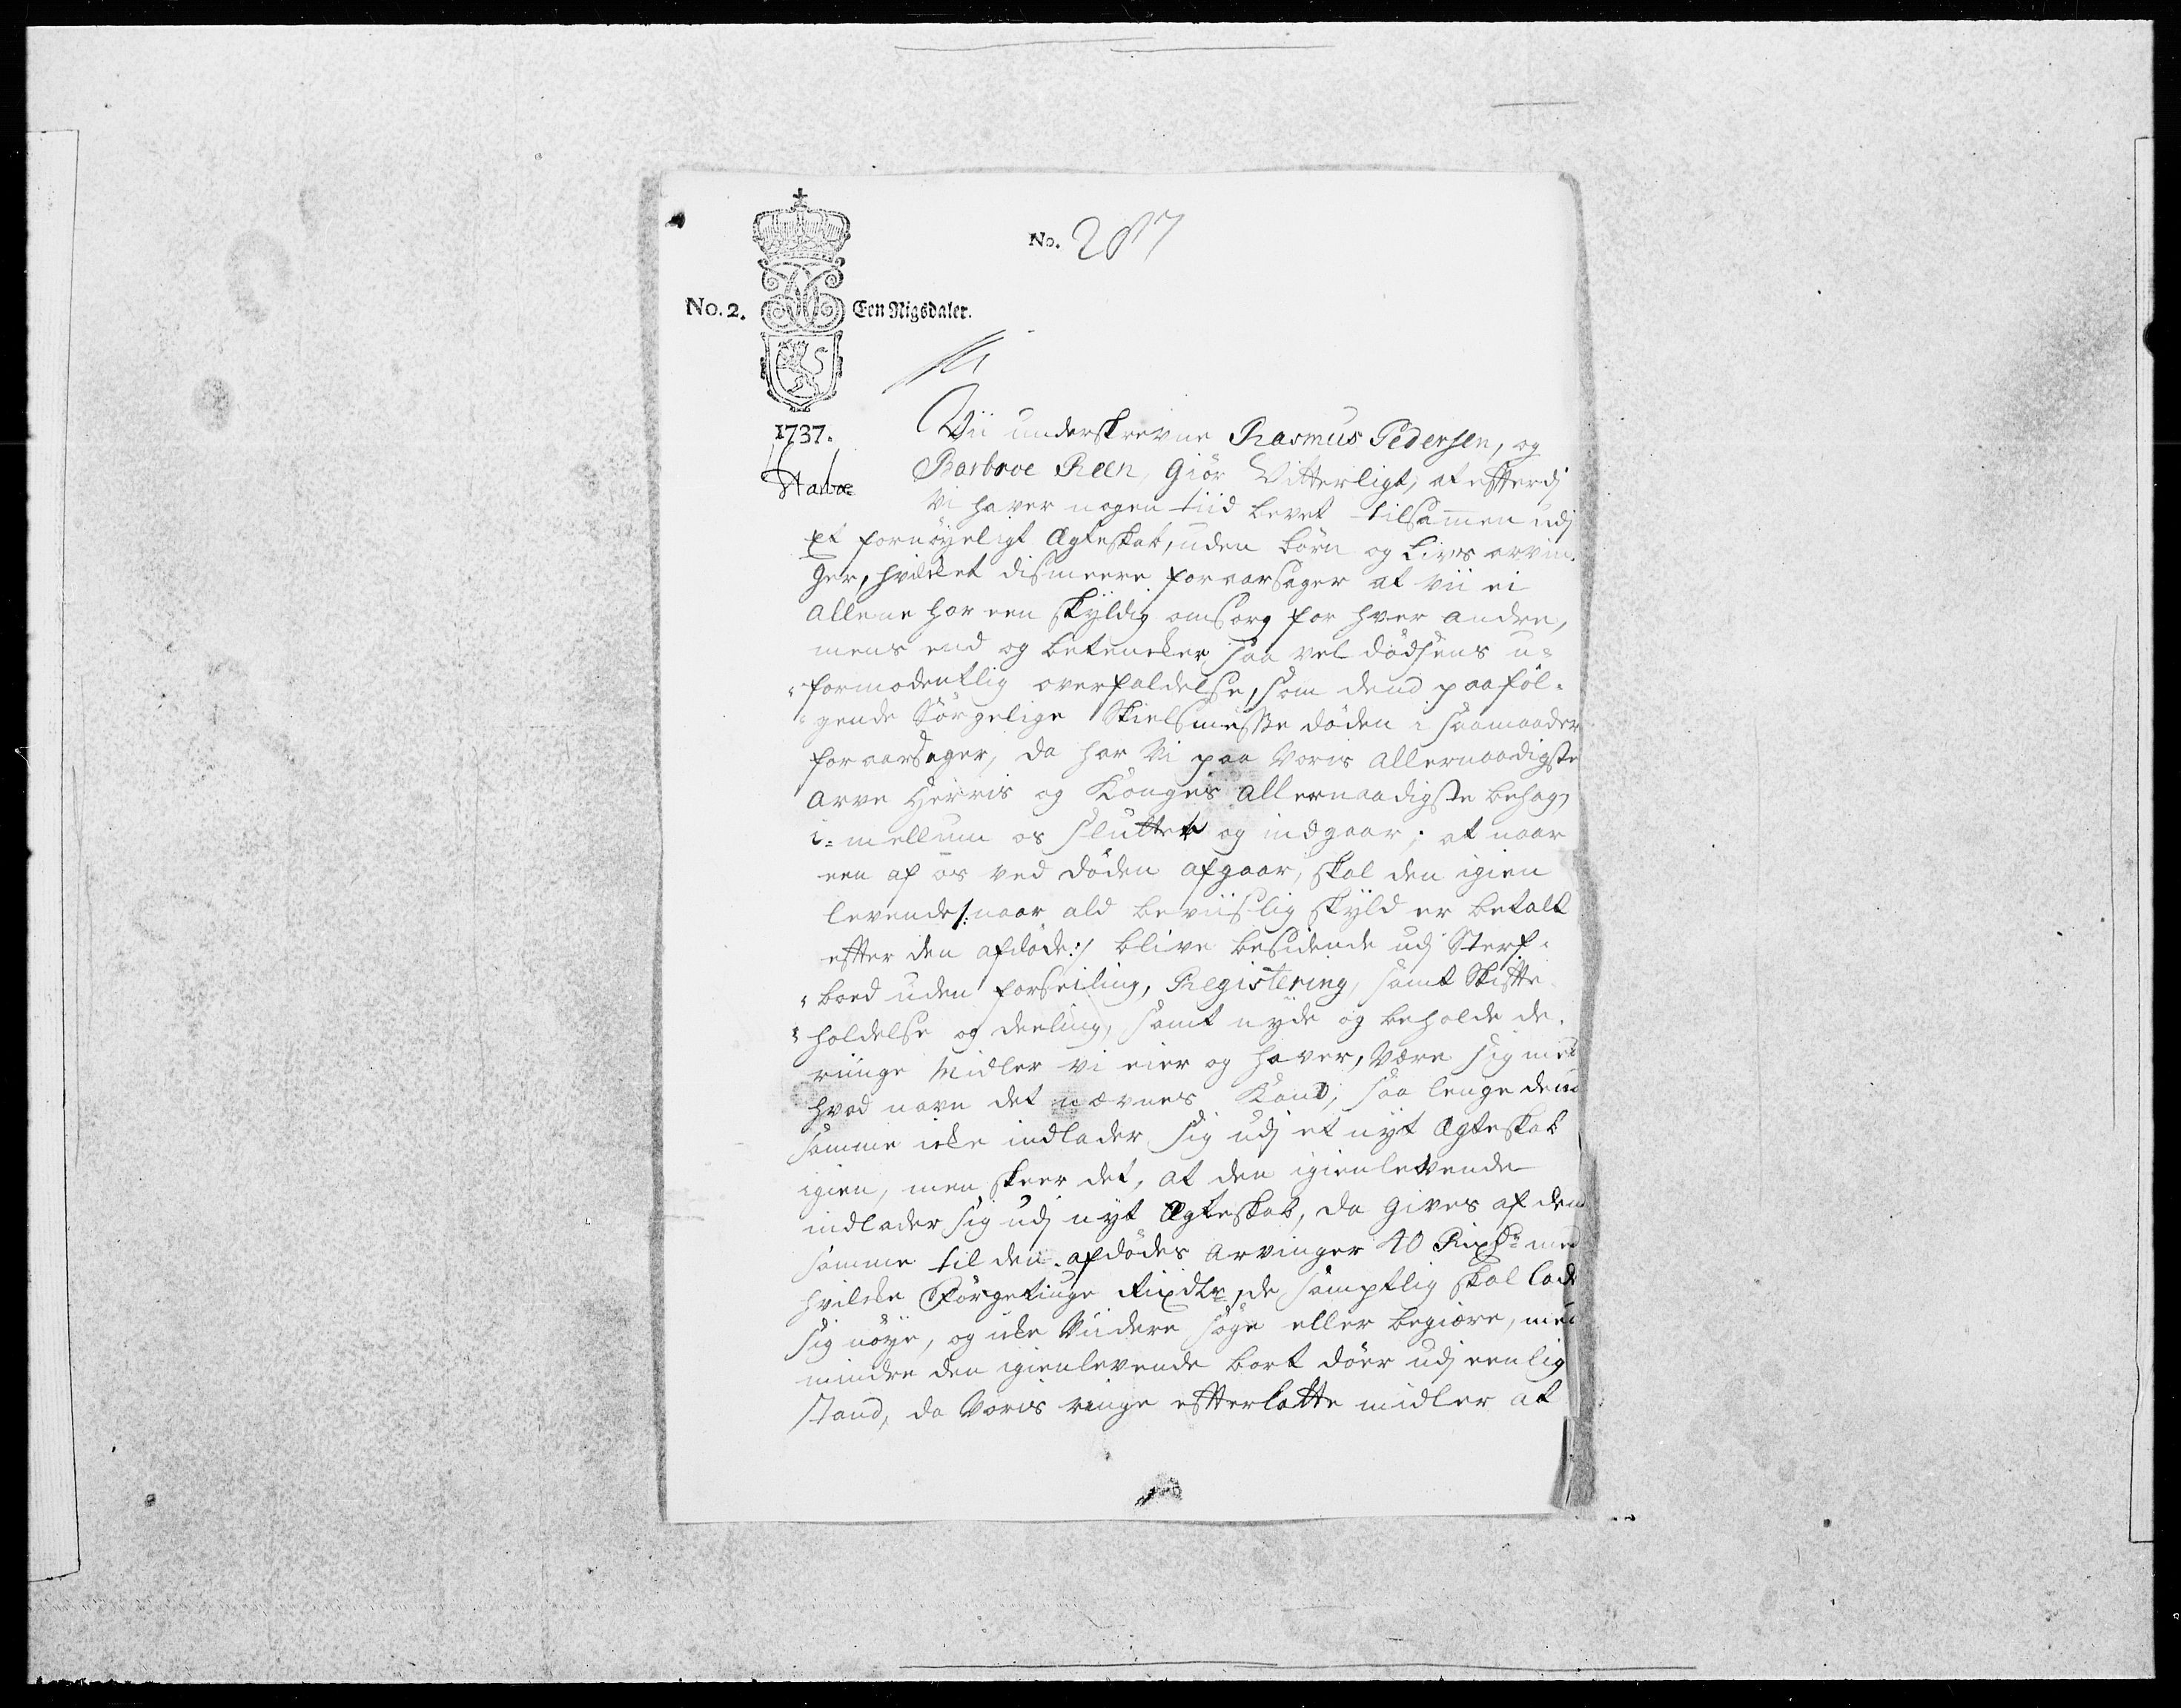 No. 287
No. 2. Een Rigsdaler.
1737.
Wii underskrevne Rasmus Pedersen, og
Barbroe Reen, Giör Vitterligt, at efterdj
Vi haver nogen tiid levet tilsammen udj
Et fornöyeligt Ægteskab, uden börn og livs arvin-
ger, hvilket dismeere foraarsager at vii ei
allene har een skÿldig omsorg for hver andre,
mens end og betencker, saa vel dödsens u=
formodentlig overfaldelse, som dend paaföl-
gende Sörgelige Skielsmisse döden i saamaader
foraarsager, da har Vi paa Voris allernaadigste
Arve Herris og Konges allernaadigste behag,
i=mellum os sluttet og indgaar; at naar
een af os ved döden afgaar, skal den igien
levende /:naar ald beviislig skÿld er betalt
efter den afdöde:/ blive besidende udj Sterf-
boed uden forseiling, Registering, samt Skifte
holdelse og deeling, samt nyde og beholde de
riinge Midler vi eier og haver, Være sig med
hvad navn det nævnes Kand, saa lenge dend
samme icke indlader sig udj et nyt Ægteskab
igien, men skeer det, at den igienlevende
indlader sig udj nyt Ægteskab, da gives af den
samme til den afdödes arvinger 40 Rixdr med
hvilcke Förgetiuge Rixdlr, de samptlig skal lade
sig nöye, og icke Viidere söge eller begiære, med
mindre den igienlevende bort döer udj eenlig
stand, da Voris ringe efterlatte midler at